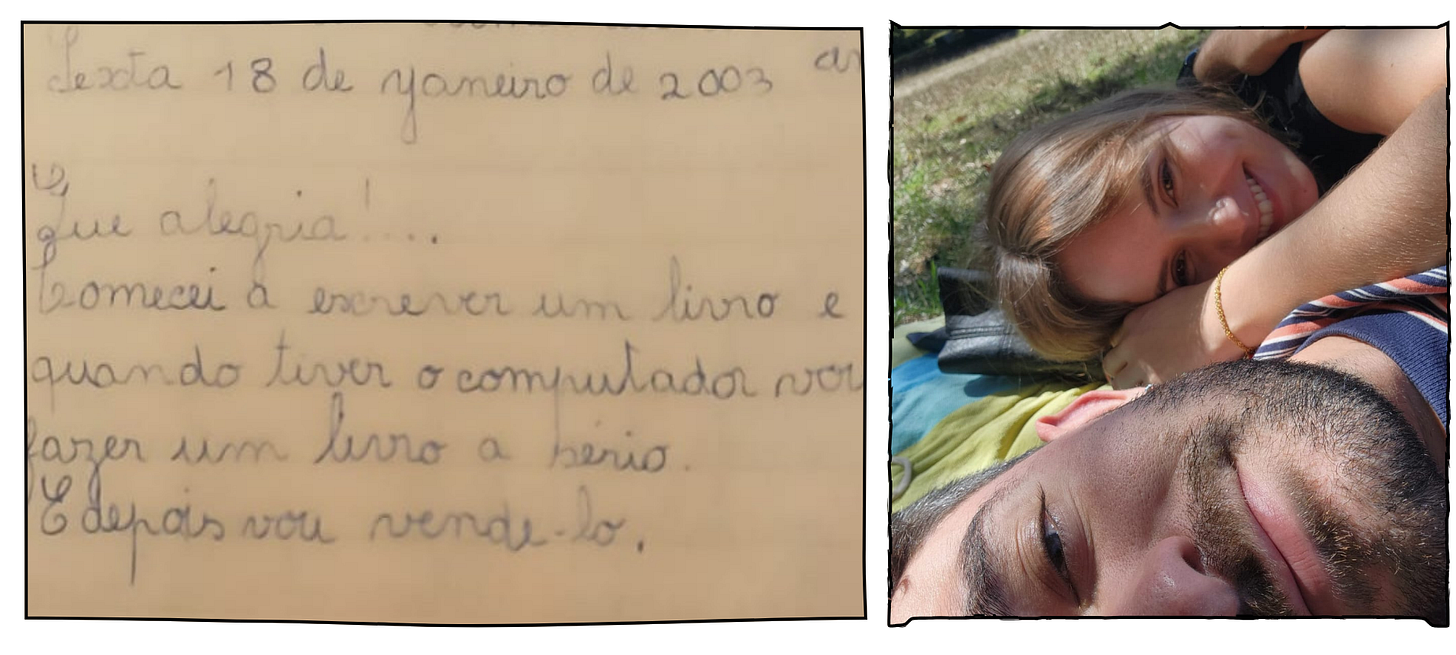 Sexta 18 de yaneiro de 2003
Que alegria!...
Comecei a escrever um livro e
quando tiver o computador vou
fazer um livro a sério.
E depois vou vende-lo.